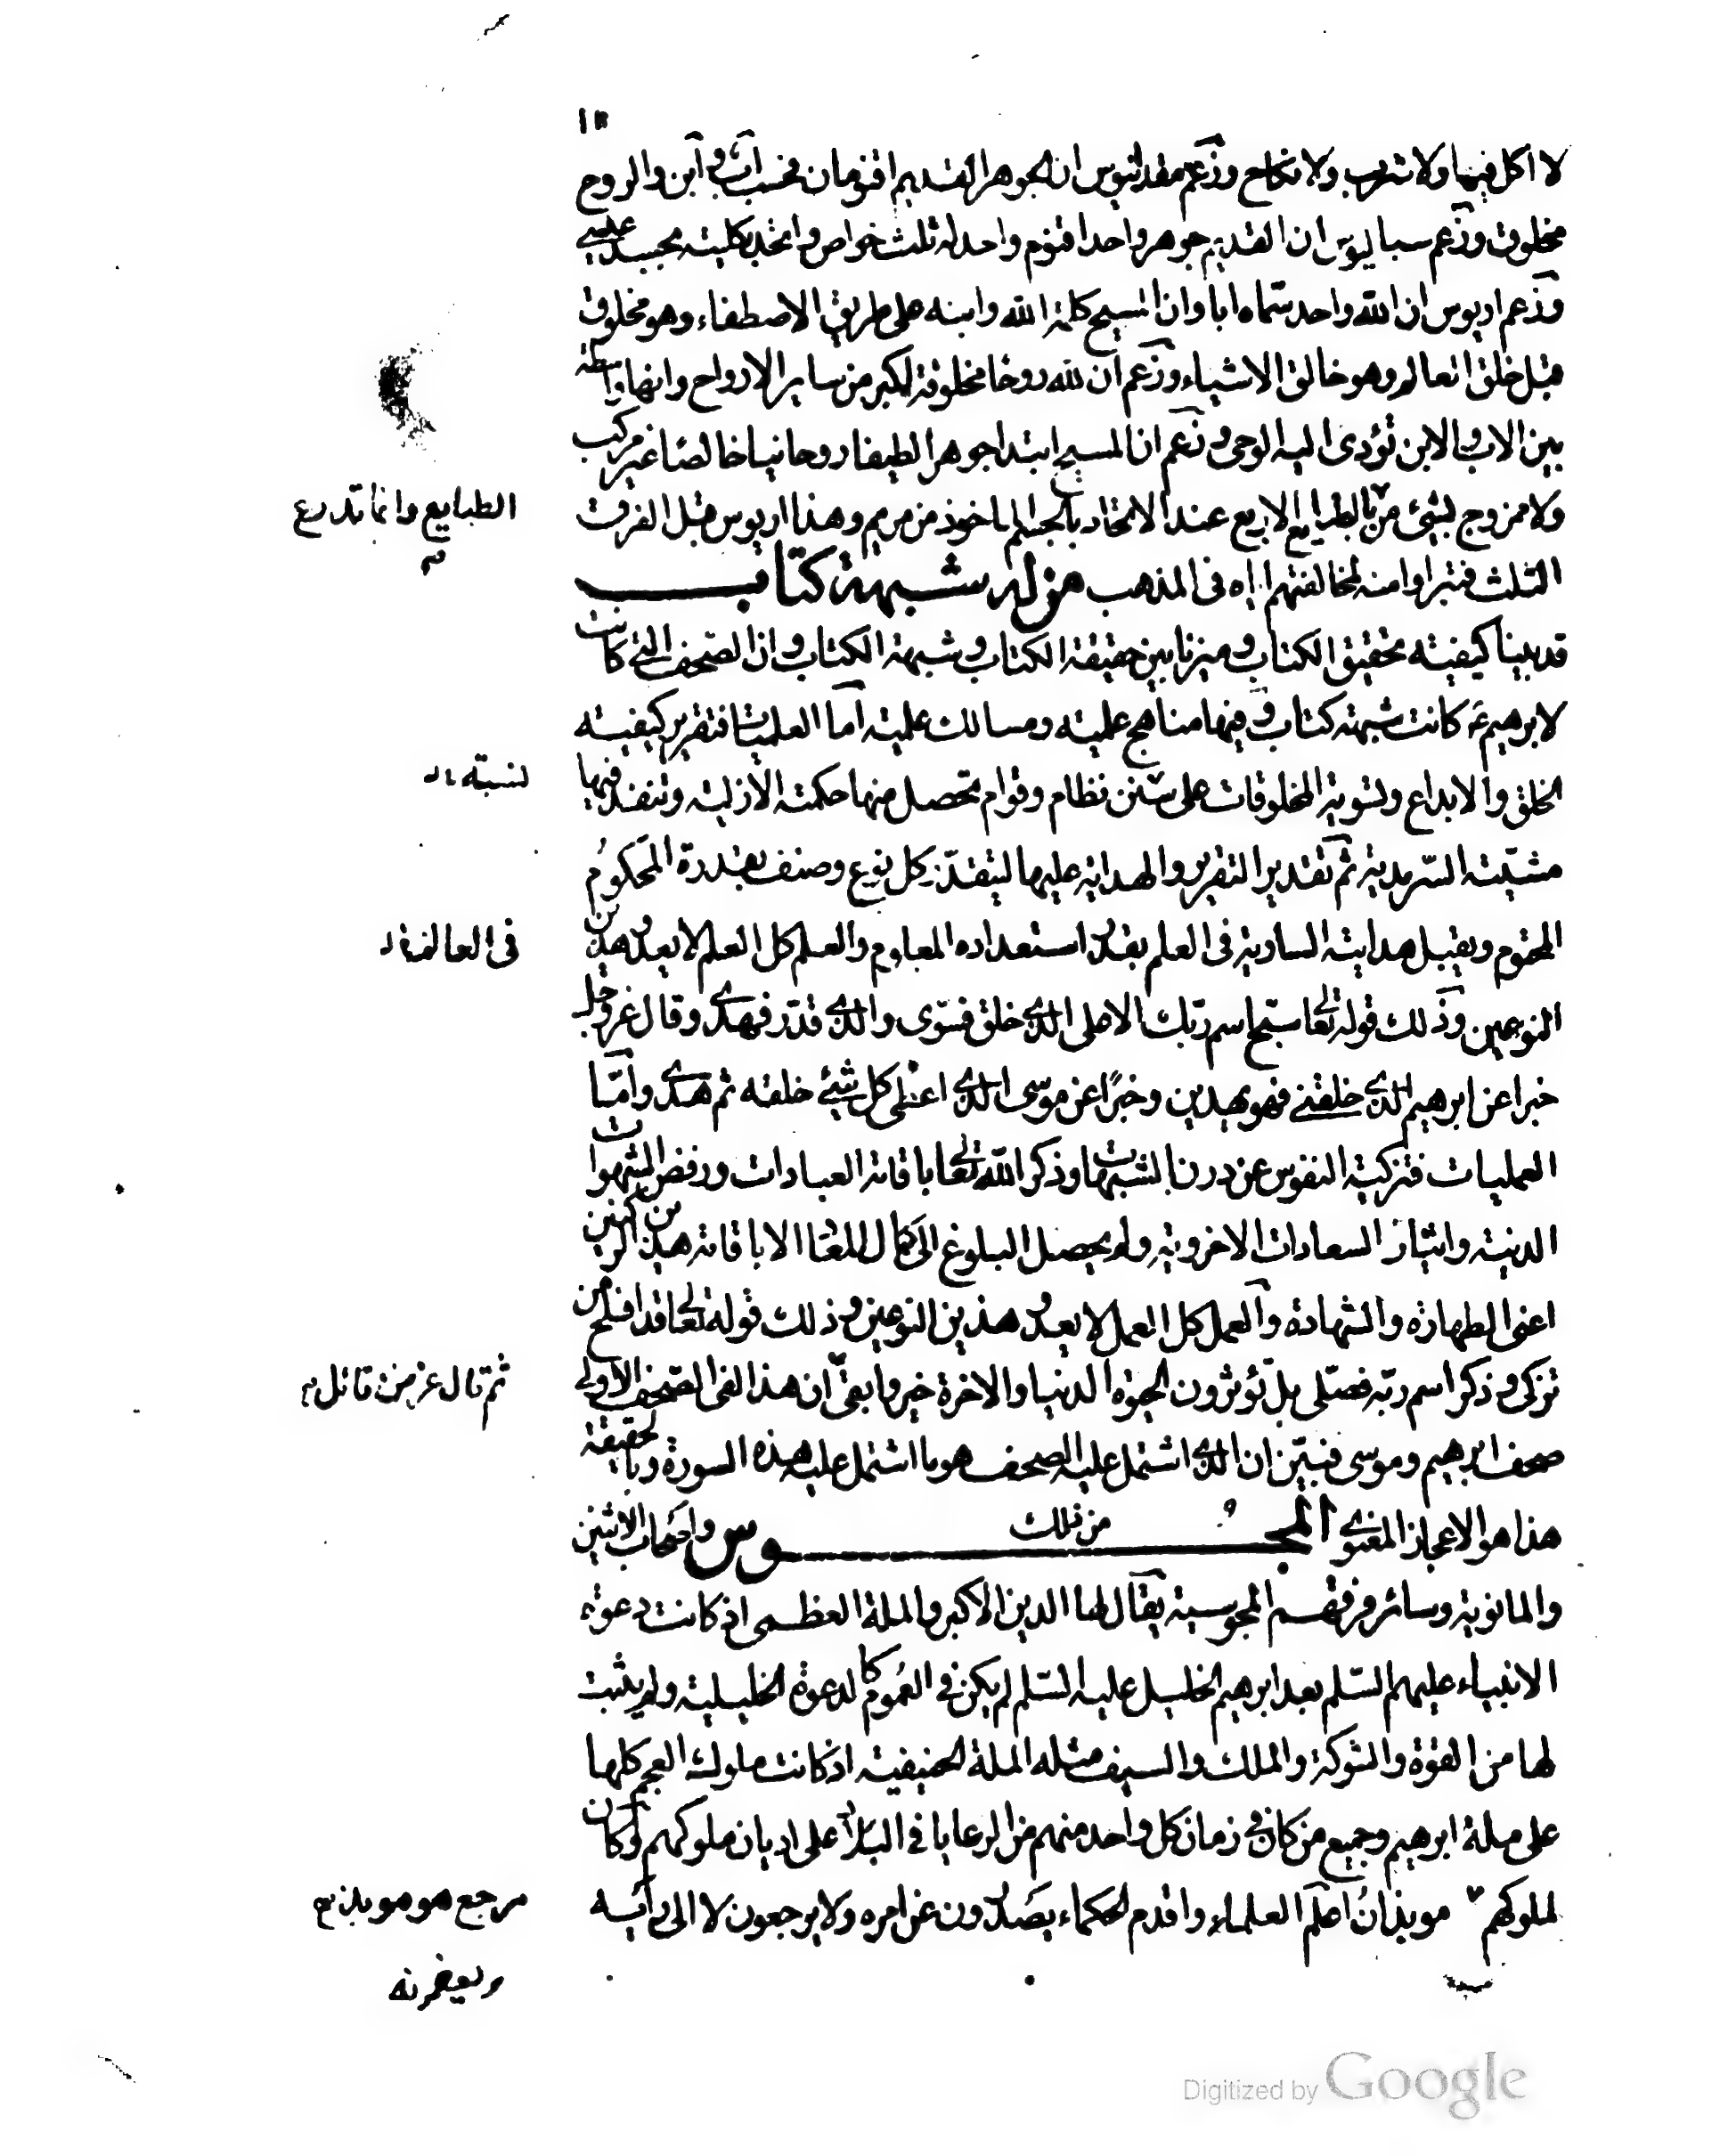 لا اكل فيها ولا شرب ولا نكاح وزعم مقدانيوس ان الجوهر القديم اقنومان فحسب اب وابن والروح
مخلوق وزعم سباليوس ان القديم جوهر واحد اقنوم واحد له ثلث خواص واتحد بكليته بجسد عيسى
وزعم اريوس ان الله واحد سماه ابا وان المسيح كلمة الله وابنه على طريق الاصطفاء وهو مخلوق
قبل خلق العالم وهو خالق الاشياء وزعم ان لله روحا مخلوقة اكبر من ساير الارواح وانها واسطة
بين الاب والابن تؤدى اليه الوحى وزعم ان المسيح ابتدا جوهرا لطيفا روحانيا خالصا غير مركب
ولا ممزوج بشئ من الطبايع الاربع عند الاتحاد بالجسم الماخوذ من مريم وهذا اريوس قبل الفرق
الطبايع وانما تدرع
الثلث فتبراوا منه لمخالفتهم اياه فى المذهب من له شبهة كتاب
قد بينا كيفية تحقيق الكتاب وميزنا بين حقيقة الكتاب وشبهة الكتاب وان الصحف التى كانت
لابرهيم ع كانت شبهة كتاب وفيها مناهج علمية ومسالك عملية اما العلميات فتقرير كيفية
الخلق والابداع وتسوية المخلوقات على سنن نظام وقوام تحصل منها حكمته الازلية وتنفذ فيها
مشيته السرمدية ثم تقدير التقرير والهداية عليها ليتقدر كل نوع وصنف بقدرة المحكوم
المحتوم ويقبل هدايته السارية فى العلم بقدر استعداده المعلوم والعلم كل العلم لا يعدو هذين
فى العالم
النوعين وذلك قوله تعالى سبح اسم ربك الاعلى الذى خلق فسوى والذى قدر فهدى وقال عز وجل
خبرا عن ابرهيم الذى خلقنى فهو يهدين وخبرا عن موسى الذى اعطى كل شئ خلقه ثم هدى واما
العمليات فتزكية النفوس عن درن الشبهات وذكر الله تعالى باقامة العبادات ورفض الشهوات
الدنية وايثار السعادات الاخروية ولم يحصل البلوغ الى كمال المعاد الا باقامة هذين الركنين
اعنى الطهارة والشهادة والعمل كل العمل لا يعدو هذين النوعين وذلك قوله تعالى قد افلح من
تزكى وذكر اسم ربه فصلى بل تؤثرون الحيوة الدنيا والاخرة خير وابقى ان هذا لفى الصحف الاولى
ثم قال عز من قائل
صحف ابرهيم وموسى فتبين ان الذى اشتمل عليه الصحف هو ما اشتمل عليه هذه السورة وبالحقيقة
هذا هو الاعجاز المعنوى من ذلك المجوس واصحاب الاثنين
والمانوية وسائر فرقهم المجوسية يقال لها الدين الاكبر والملة العظمى اذ كانت دعوة
الانبياء عليهم السلم بعد ابرهيم الخليل عليه السلم لم يكن فى العموم كالدعوة الخليلية ولم يثبت
لها من القوة والشوكة والملك والسيف مثل الملة الحنيفية اذ كانت ملوك العجم كلها
على ملة ابرهيم وجميع من كان فى زمان كل واحد منهم من الرعايا فى البلاد على اديان ملوكهم وكان
لملوكهم موبذان اعلم العلماء واقدم الحكماء يصدرون عن امره ولا يرجعون لا الى رايه
مرجع هو موبذ
Digitized by Google